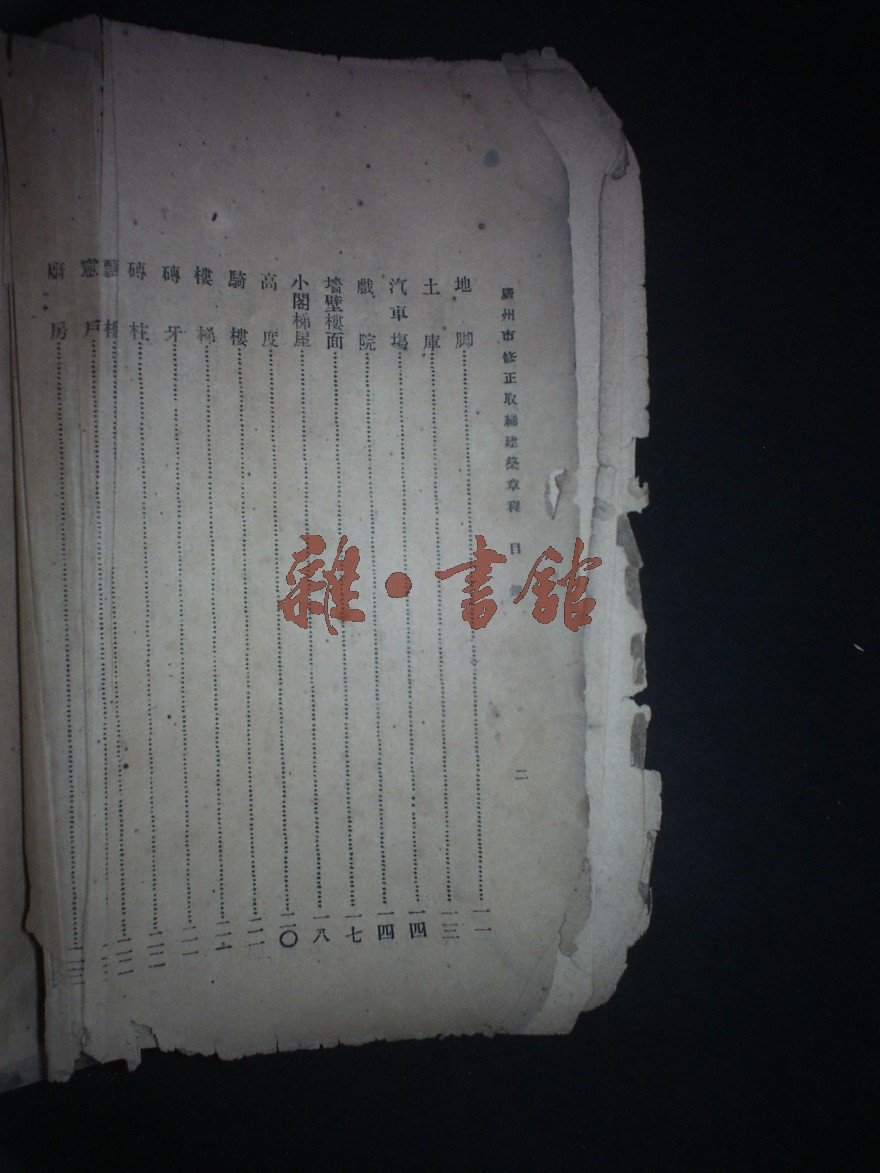 廣州市修正取締建築章程 目 二
地脚……一一
土庫……一三
汽車塲……一四
戲院……一四
墻壁樓面……一七
小閣梯屋……一八
高度……二〇
騎樓……二一
樓梯……二一
磚牙……二一
磚柱……二二
戶
廚房
雜·書館